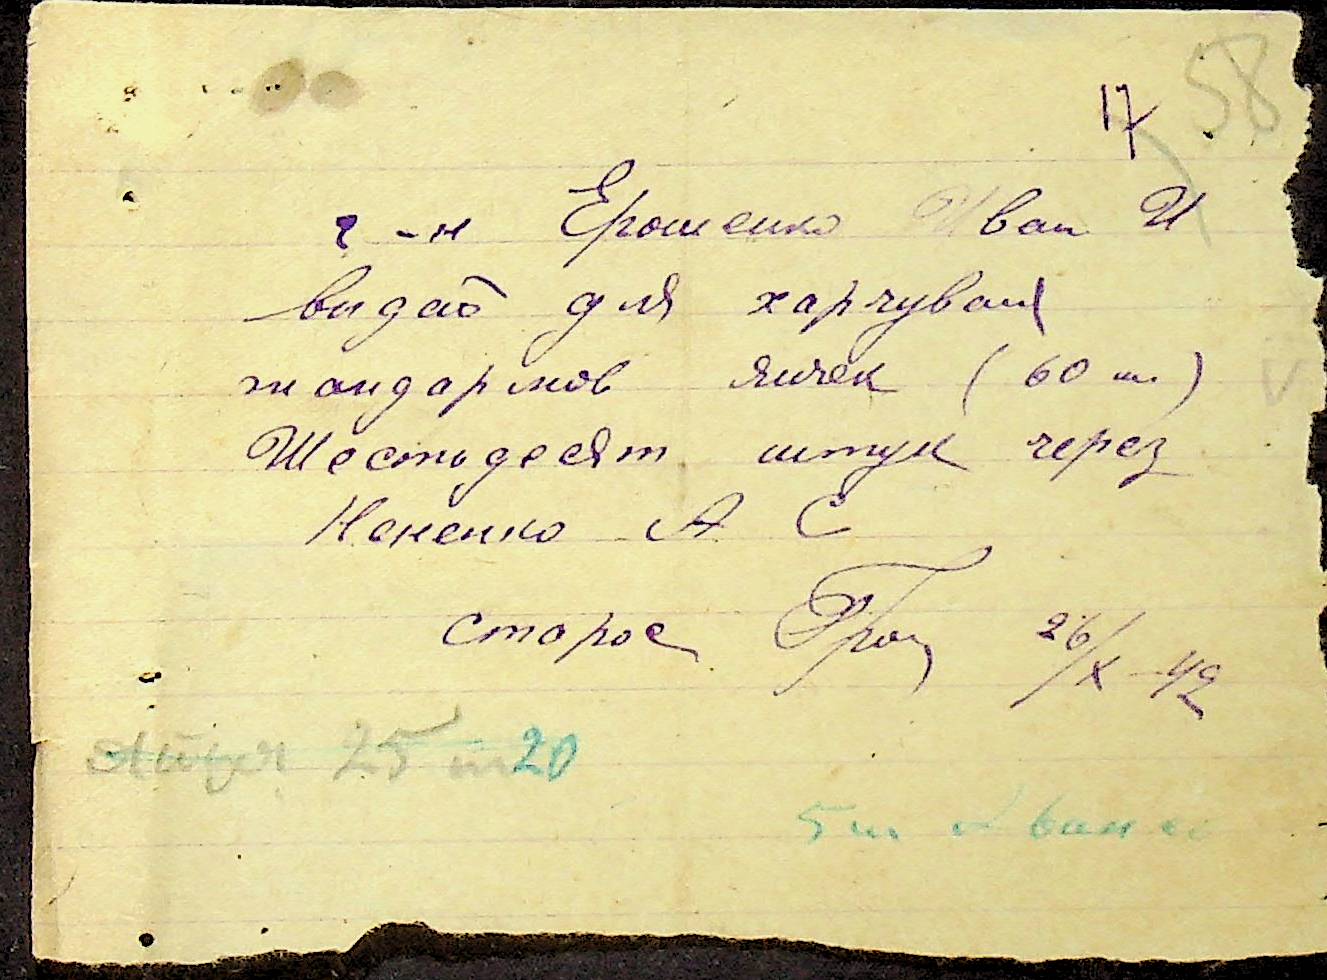 17 58
г-н Ерошенко Иван И
видать для харчуваня
жандармов яичек (60 шт.)
Шестьдесят штук через
Нененко А С
старос 26/X-42
25 шт 20
5 ш